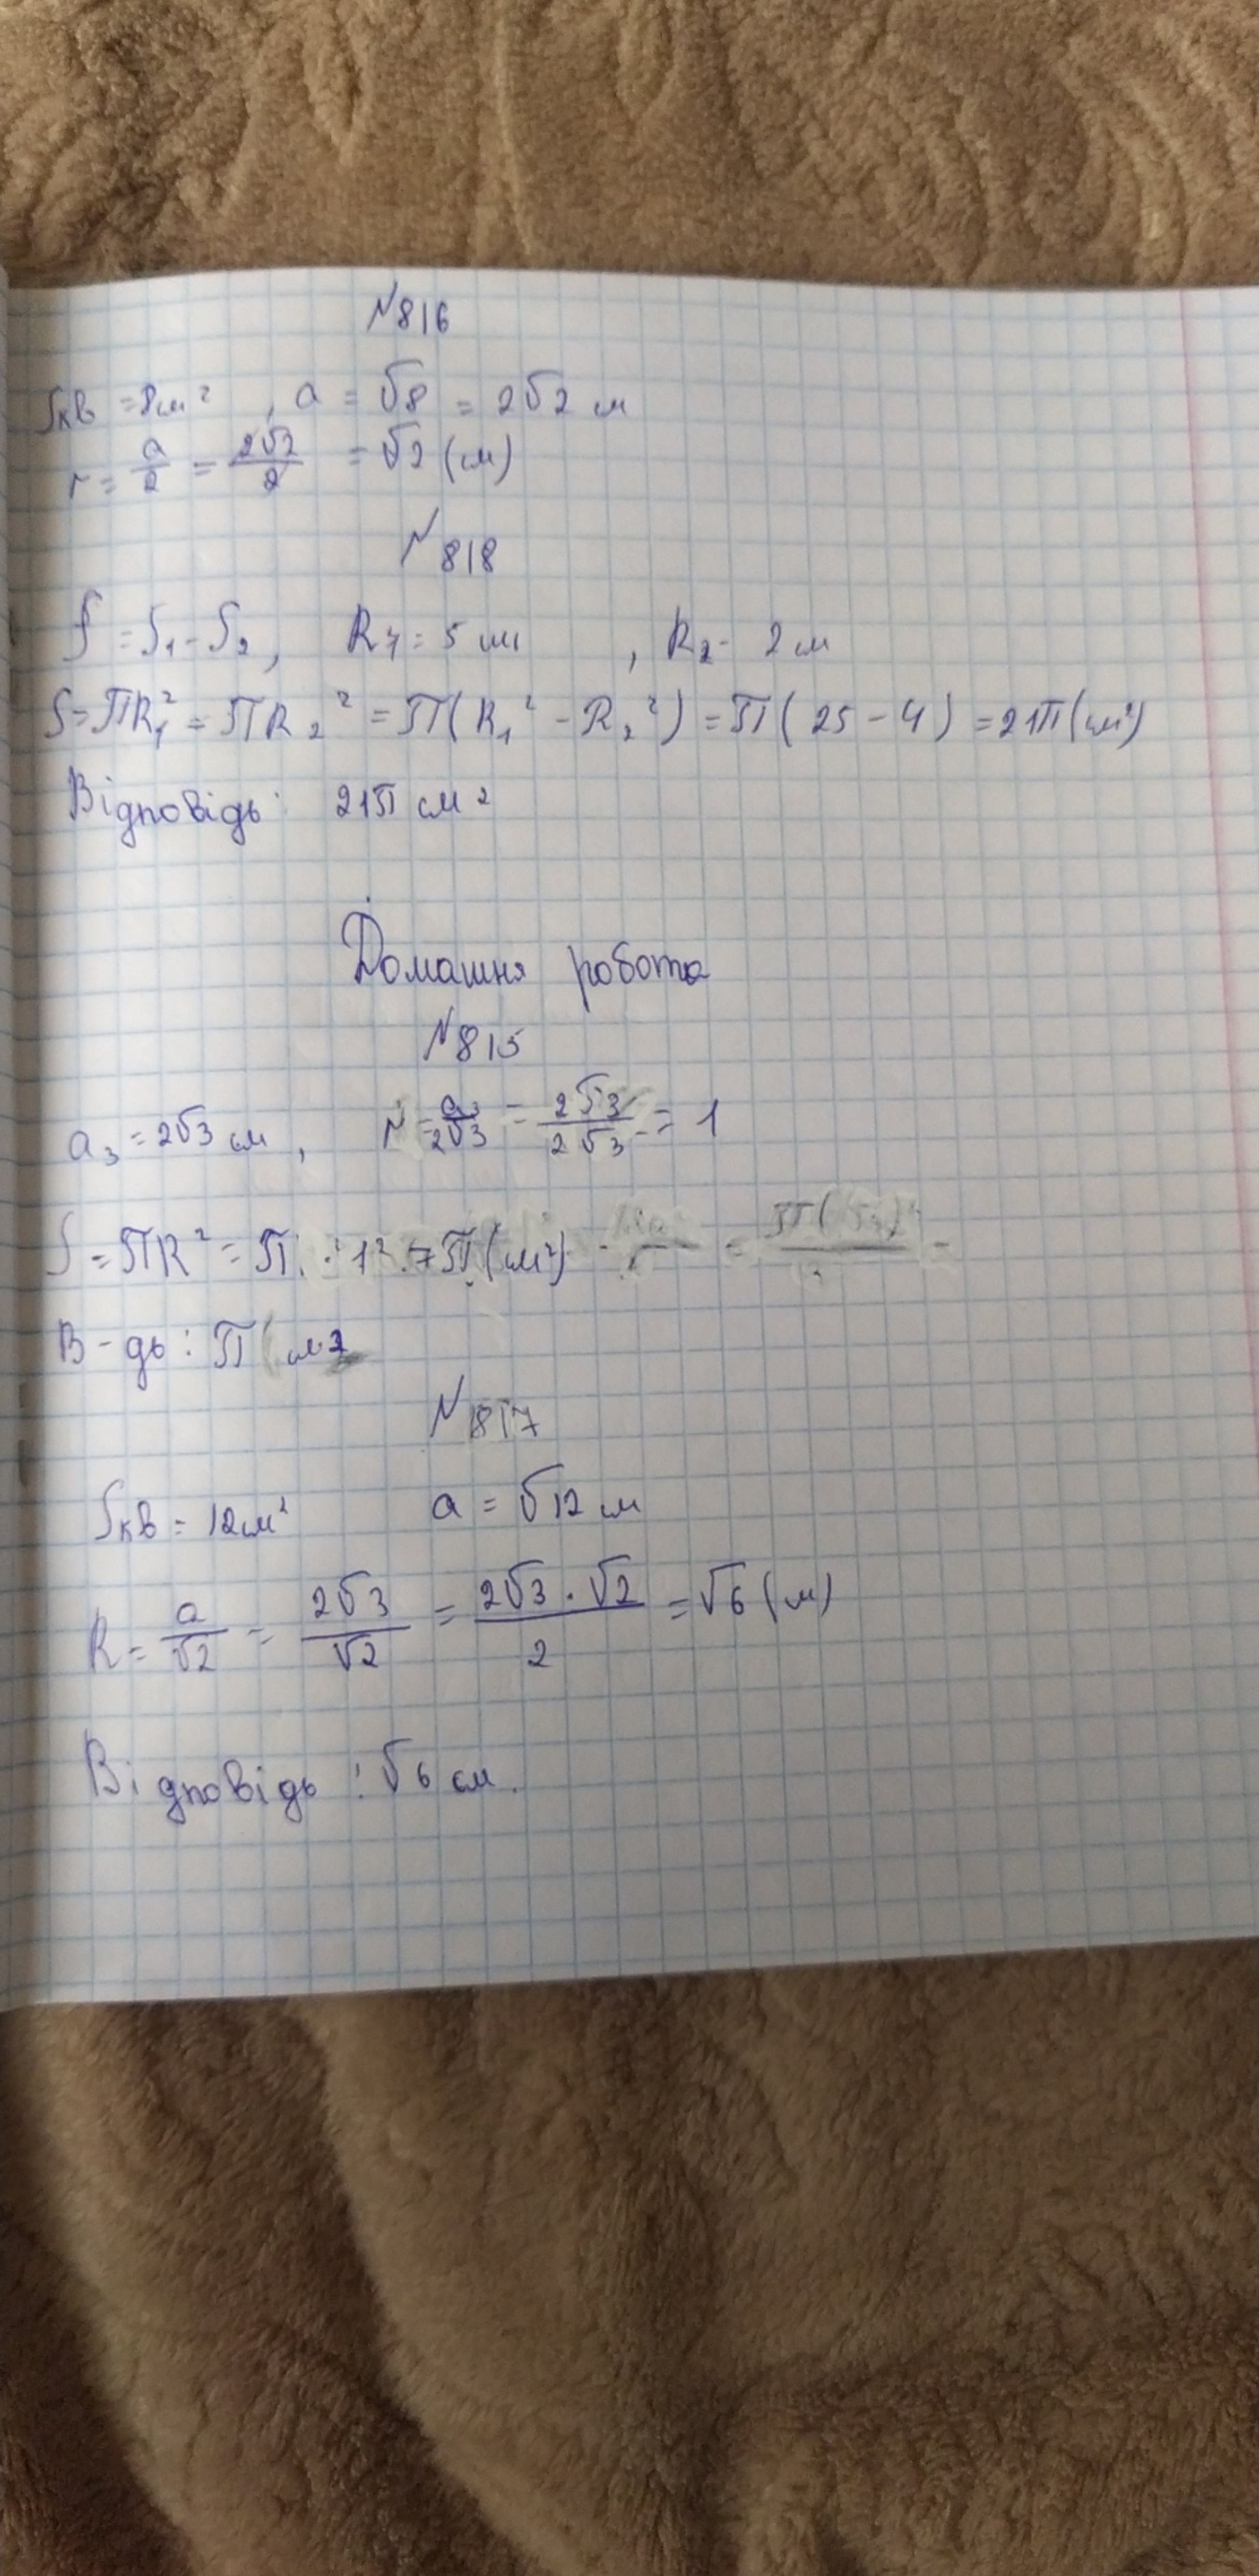 №816
Sкв = 8см², a = √8 = 2√2 см
r = a/2 = 2√2/2 = √2 (см)
№818
S = S₁ - S₂, R₁ = 5 см, R₂ - 2 см
S = πR₁² = πR₂² = π(R₁² - R₂²) = π(25 - 4) = 21π (см²)
Відповідь: 21π см²
Домашня робота
№815
a₃ = 2√3 см, r = a₃/2√3 = 2√3/2√3 = 1
S = πR² = π · 1² = π (см²)
В-дь: π см2
№817
Sкв = 12см² a = √12 см
R = a/√2 = 2√3/√2 = 2√3·√2/2 = √6 (см)
Відповідь: √6 см.